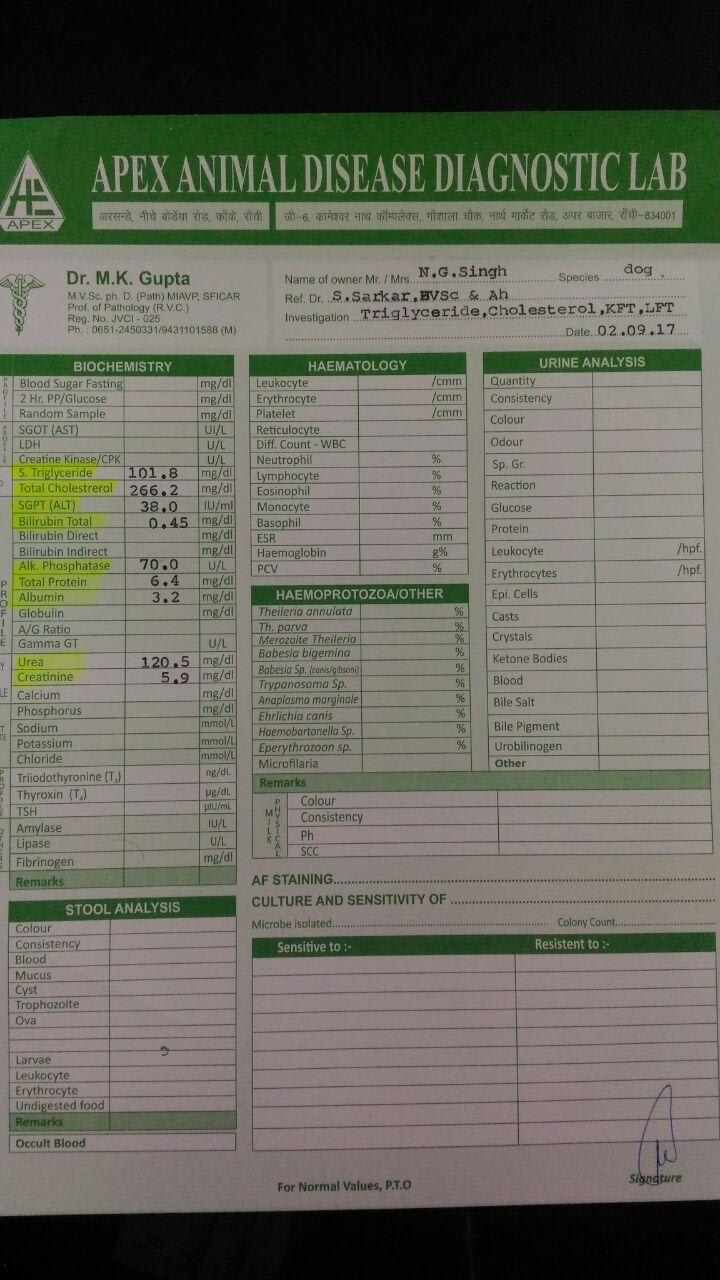 APEX ANIMAL DISEASE DIAGNOSTIC LAB
APEX
अरसन्डे, नीचे बोड़ेया रोड, काँके, राँची
जी-6, कामेश्वर नाथ कॉम्पलेक्स, गौशाला चौक, नार्थ मार्केट रोड, अपर बाजार, राँची-834001
Dr. M.K. Gupta
M.V.Sc. ph. D. (Path) MIAVP, SFICAR
Prof. of Pathology (R.V.C.)
Reg. No. JVCI - 025
Ph. : 0651-2450331/9431101588 (M)
Name of owner Mr. / Mrs. N.G.Singh Species dog.
Ref. Dr. S.Sarkar.BVSc & Ah
Investigation Triglyceride,Cholesterol,KFT,LFT
Date 02.09.17
BIOCHEMISTRY
Blood Sugar Fasting mg/dl
2 Hr. PP/Glucose mg/dl
Random Sample mg/dl
SGOT (AST) UI/L
LDH U/L
Creatine Kinase/CPK U/L
S. Triglyceride 101.8 mg/dl
Total Cholestrerol 266.2 mg/dl
SGPT (ALT) 38.0 IU/ml
Bilirubin Total 0.45 mg/dl
Bilirubin Direct mg/dl
Bilirubin Indirect mg/dl
Alk. Phosphatase 70.0 U/L
Total Protein 6.4 mg/dl
Albumin 3.2 mg/dl
Globulin mg/dl
A/G Ratio
Gamma GT U/L
Urea 120.5 mg/dl
Creatinine 5.9 mg/dl
Calcium mg/dl
Phosphorus mg/dl
Sodium mmol/L
Potassium mmol/L
Chloride mmol/L
Triiodothyronine (T3) ng/dL
Thyroxin (T4) µg/dL
TSH µIU/mL
Amylase IU/L
Lipase U/L
Fibrinogen mg/dl
Remarks
STOOL ANALYSIS
Colour
Consistency
Blood
Mucus
Cyst
Trophozoite
Ova
Larvae
Leukocyte
Erythrocyte
Undigested food
Remarks
Occult Blood
HAEMATOLOGY
Leukocyte /cmm
Erythrocyte /cmm
Platelet /cmm
Reticulocyte
Diff. Count - WBC
Neutrophil %
Lymphocyte %
Eosinophil %
Monocyte %
Basophil %
ESR mm
Haemoglobin g%
PCV %
HAEMOPROTOZOA/OTHER
Theileria annulata %
Th. parva %
Merozoite Theileria %
Babesia bigemina %
Babesia Sp. (canis/gibsoni) %
Trypanosoma Sp. %
Anaplasma marginale %
Ehrlichia canis %
Haemobartonella Sp. %
Eperythrozoon sp. %
Microfilaria
Remarks
MILK PHYSICAL
Colour
Consistency
Ph
SCC
URINE ANALYSIS
Quantity
Consistency
Colour
Odour
Sp. Gr.
Reaction
Glucose
Protein
Leukocyte /hpf.
Erythrocytes /hpf.
Epi. Cells
Casts
Crystals
Ketone Bodies
Blood
Bile Salt
Bile Pigment
Urobilinogen
Other
AF STAINING
CULTURE AND SENSITIVITY OF
Microbe isolated Colony Count
Sensitive to :- Resistent to :-
Signature
For Normal Values, P.T.O